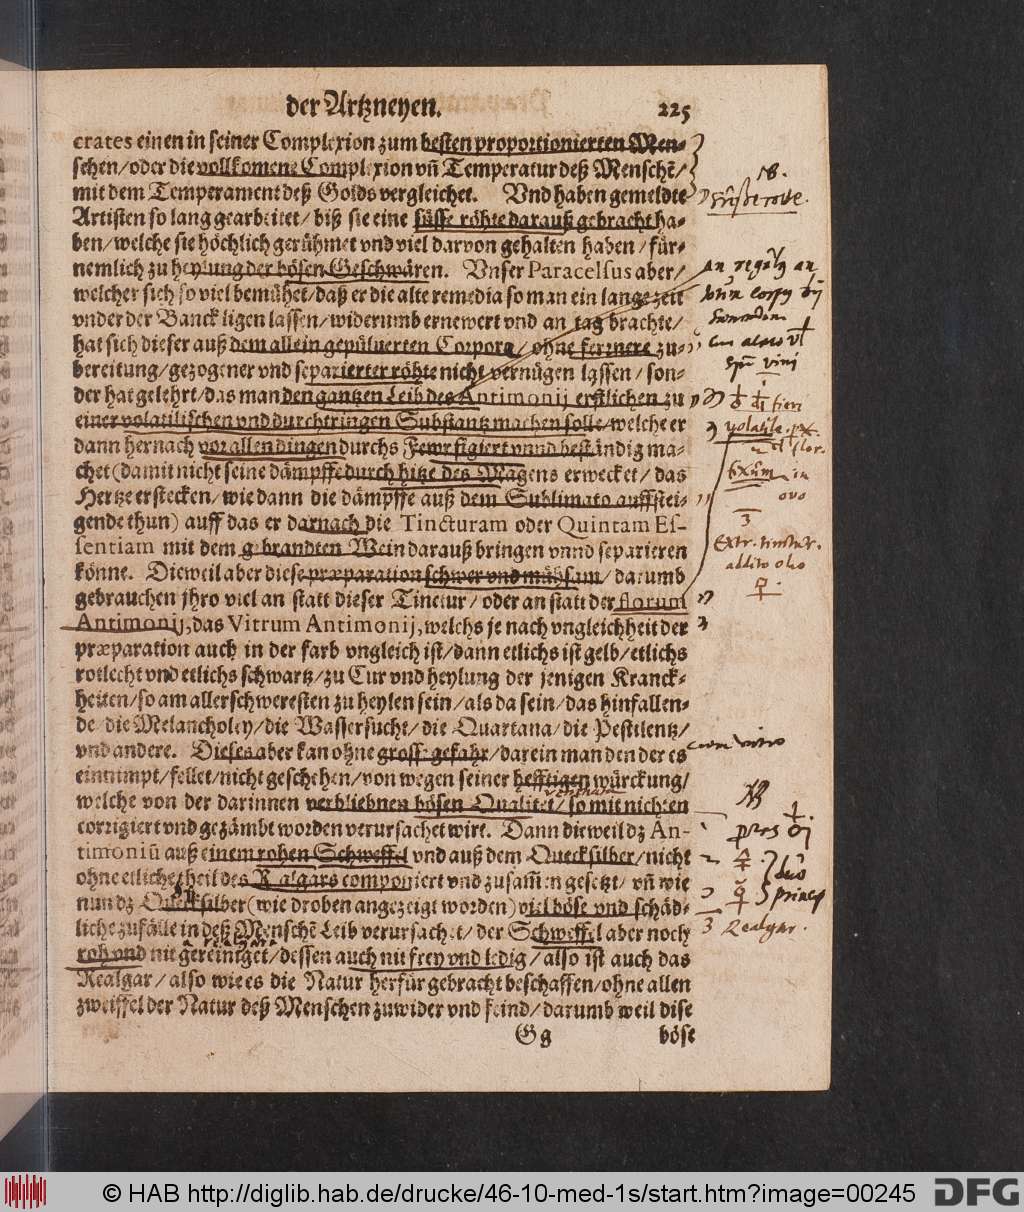 der Artzneyen. 225
crates einen in seiner Complexion zum besten proportionierten Men-
schen/oder die vollkomene Complexion vñ Temperatur deß Menschẽ/
mit dem Temperament deß Golds vergleichet. Vnd haben gemeldte
Artisten so lang gearbeitet/biß sie eine süsse röhte darauß gebracht ha-
ben/welche sie höchlich gerühmet vnd viel darvon gehalten haben/für-
nemlich zu heylung der bösen Geschwären. Vnser Paracelsus aber/
welcher sich so viel bemühet/daß er die alte remedia so man ein lange zeit
vnder der Banck ligen lassen/widerumb ernewert vnd an tag brachte/
hat sich dieser auß dem allein gepülverten Corpora/ohne fernere zu-
bereitung/gezogener vnd separierter röhte nicht vernügen lassen/son-
der hat gelehrt/das man den gantzen Leib des Antimonij erstlichen zu
einer volatilischen vnd durchtringen Substantz machen solle/welche er
dann hernach vor allen dingen durchs Fewr figiert vnnd beständig ma-
chet (damit nicht seine dämpffe durch hitze des Magens erwecket/das
Hertze erstecken/wie dann die dämpffe auß dem Sublimato auffstei-
gende thun) auff das er darnach die Tincturam oder Quintam Es-
sentiam mit dem gebrandten Wein darauß bringen vnnd separieren
könne. Dieweil aber diese præparation schwer vnd mühsam/darumb
gebrauchen jhro viel an statt dieser Tinctur/oder an statt der florum
Antimonij, das Vitrum Antimonij, welchs je nach vngleichheit der
præparation auch in der farb vngleich ist/dann etlichs ist gelb/etlichs
rotlecht vnd etlichs schwartz/zu Cur vnd heylung der jenigen Kranck-
heiten/so am allerschweresten zu heylen sein/als da sein/das hinfallen-
de/die Melancholey/die Wassersucht/die Quartana/die Pestilentz/
vnd andere. Dieses aber kan ohne grosse gefahr/darein man den der es
einnimpt/fellet/nicht geschehen/von wegen seiner hefftigen würckung/
welche von der darinnen verbliebnen bösen Qualitet/so mit nichten
corrigiert vnd gezämbt worden verursachet wirt. Dann dieweil dz An-
timoniũ auß einem rohen Schweffel vnd auß dem Quecksilber/nicht
ohne etliche theil des Realgars componiert vnd zusam̃en gesetzt/vñ wie
nun dz Quecksilber (wie droben angezeigt worden) viel böse vnd schäd-
liche zufälle in deß Menschẽ Leib verursachet/der Schweffel aber noch
roh vnd nit gereiniget/dessen auch nit frey vnd ledig/also ist auch das
Realgar/also wie es die Natur herfür gebracht beschaffen/ohne allen
zweiffel der Natur deß Menschen zuwider vnd feind/darumb weil dise
Gg böse
NB.
volatile
in
ovo
3
addito oleo
cum vitro
NB
3 Realgar.
© HAB http://diglib.hab.de/drucke/46-10-med-1s/start.htm?image=00245 DFG